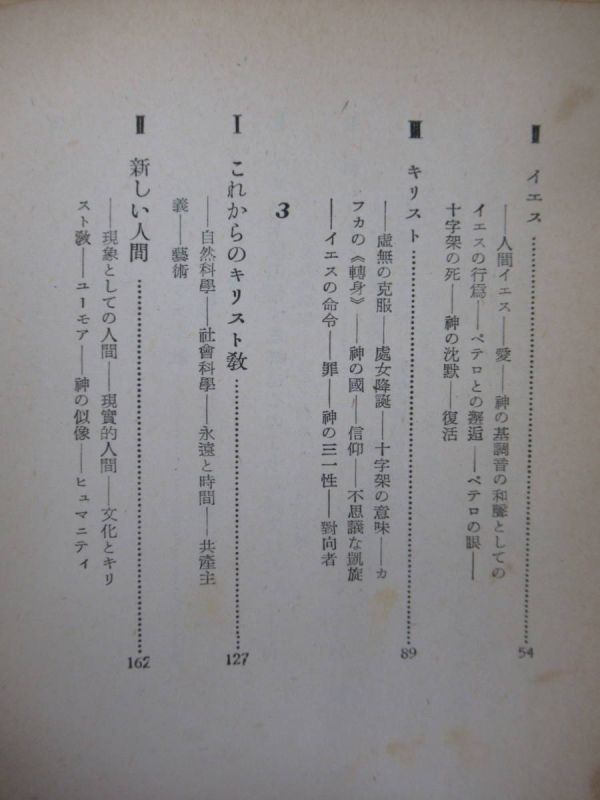 Ⅱ イエス……………………………………54
――人間イエス――愛――神の基調音の和聲としての
イエスの行爲――ペテロとの邂逅――ペテロの眼――
十字架の死――神の沈默――復活
Ⅲ キリスト……………………………………89
――虛無の克服――處女降誕――十字架の意味――カ
フカの《轉身》――神の國――信仰――不思議な凱旋
――イエスの命令――罪――神の三一性――對向者
3
Ⅰ これからのキリスト敎……………………………………127
――自然科學――社會科學――永遠と時間――共產主
義――藝術
Ⅱ 新しい人間……………………………………162
――現象としての人間――現實的人間――文化とキリ
スト敎――ユーモア――神の似像――ヒュマニティ